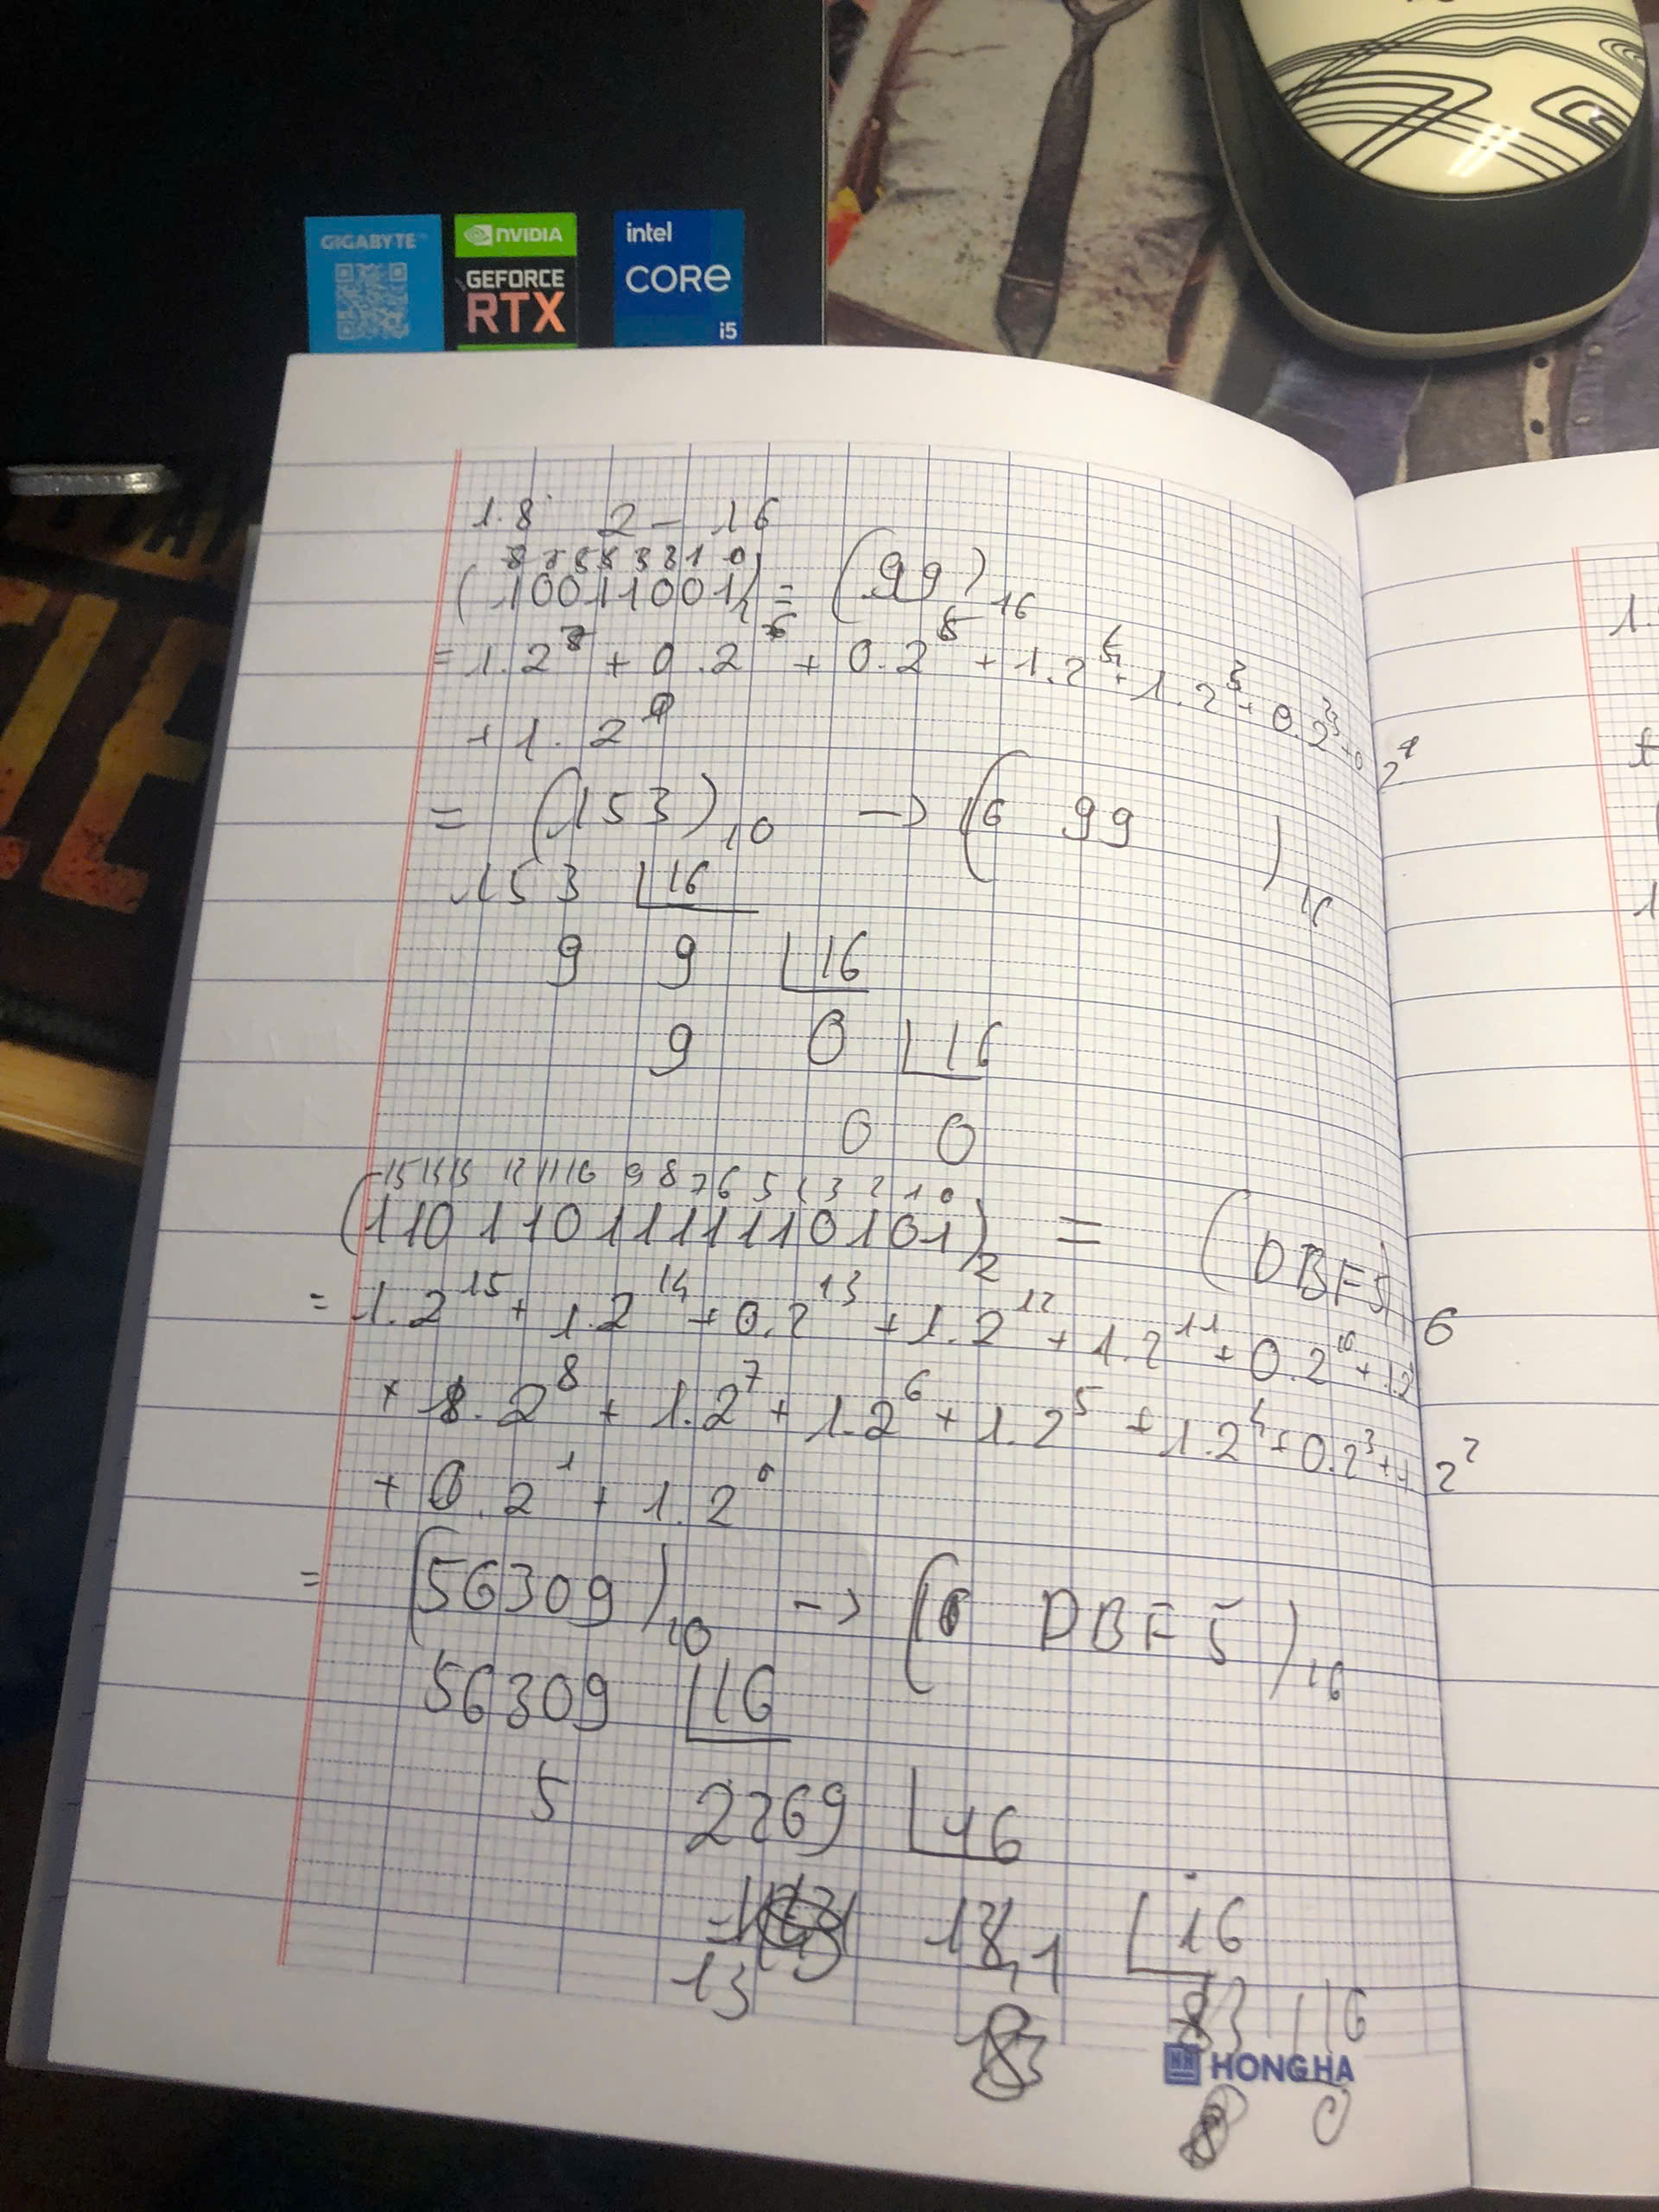 GIGABYTE
NVIDIA
GEFORCE
RTX
intel
CORE
i5
1.8 2 - 16
(10011001)₂ = (99)₁₆
= 1.2⁷ + 0.2⁶ + 0.2⁵ + 1.2⁴ + 1.2³ + 0.2² + 0 2¹
+ 1.2⁰
= (153)₁₀ -> (16 99)₁₆
153 16
9 9 16
9 0 16
0 0
15 14 13 12 11 10 9 8 7 6 5 4 3 2 1 0
(1101101111110101)₂ = (DBF5)
6
= 1.2¹⁵ + 1.2¹⁴ + 0.2¹³ + 1.2¹² + 1.2¹¹ + 0.2¹⁰ + 1.2
+ 1.2⁸ + 1.2⁷ + 1.2⁶ + 1.2⁵ + 1.2⁴ + 0.2³ + 1 2²
+ 0.2¹ + 1.2⁰
= (56309)₁₀ -> (16 DBF5)₁₆
56309 16
5 2269 16
13 16
16
HONG HA
0